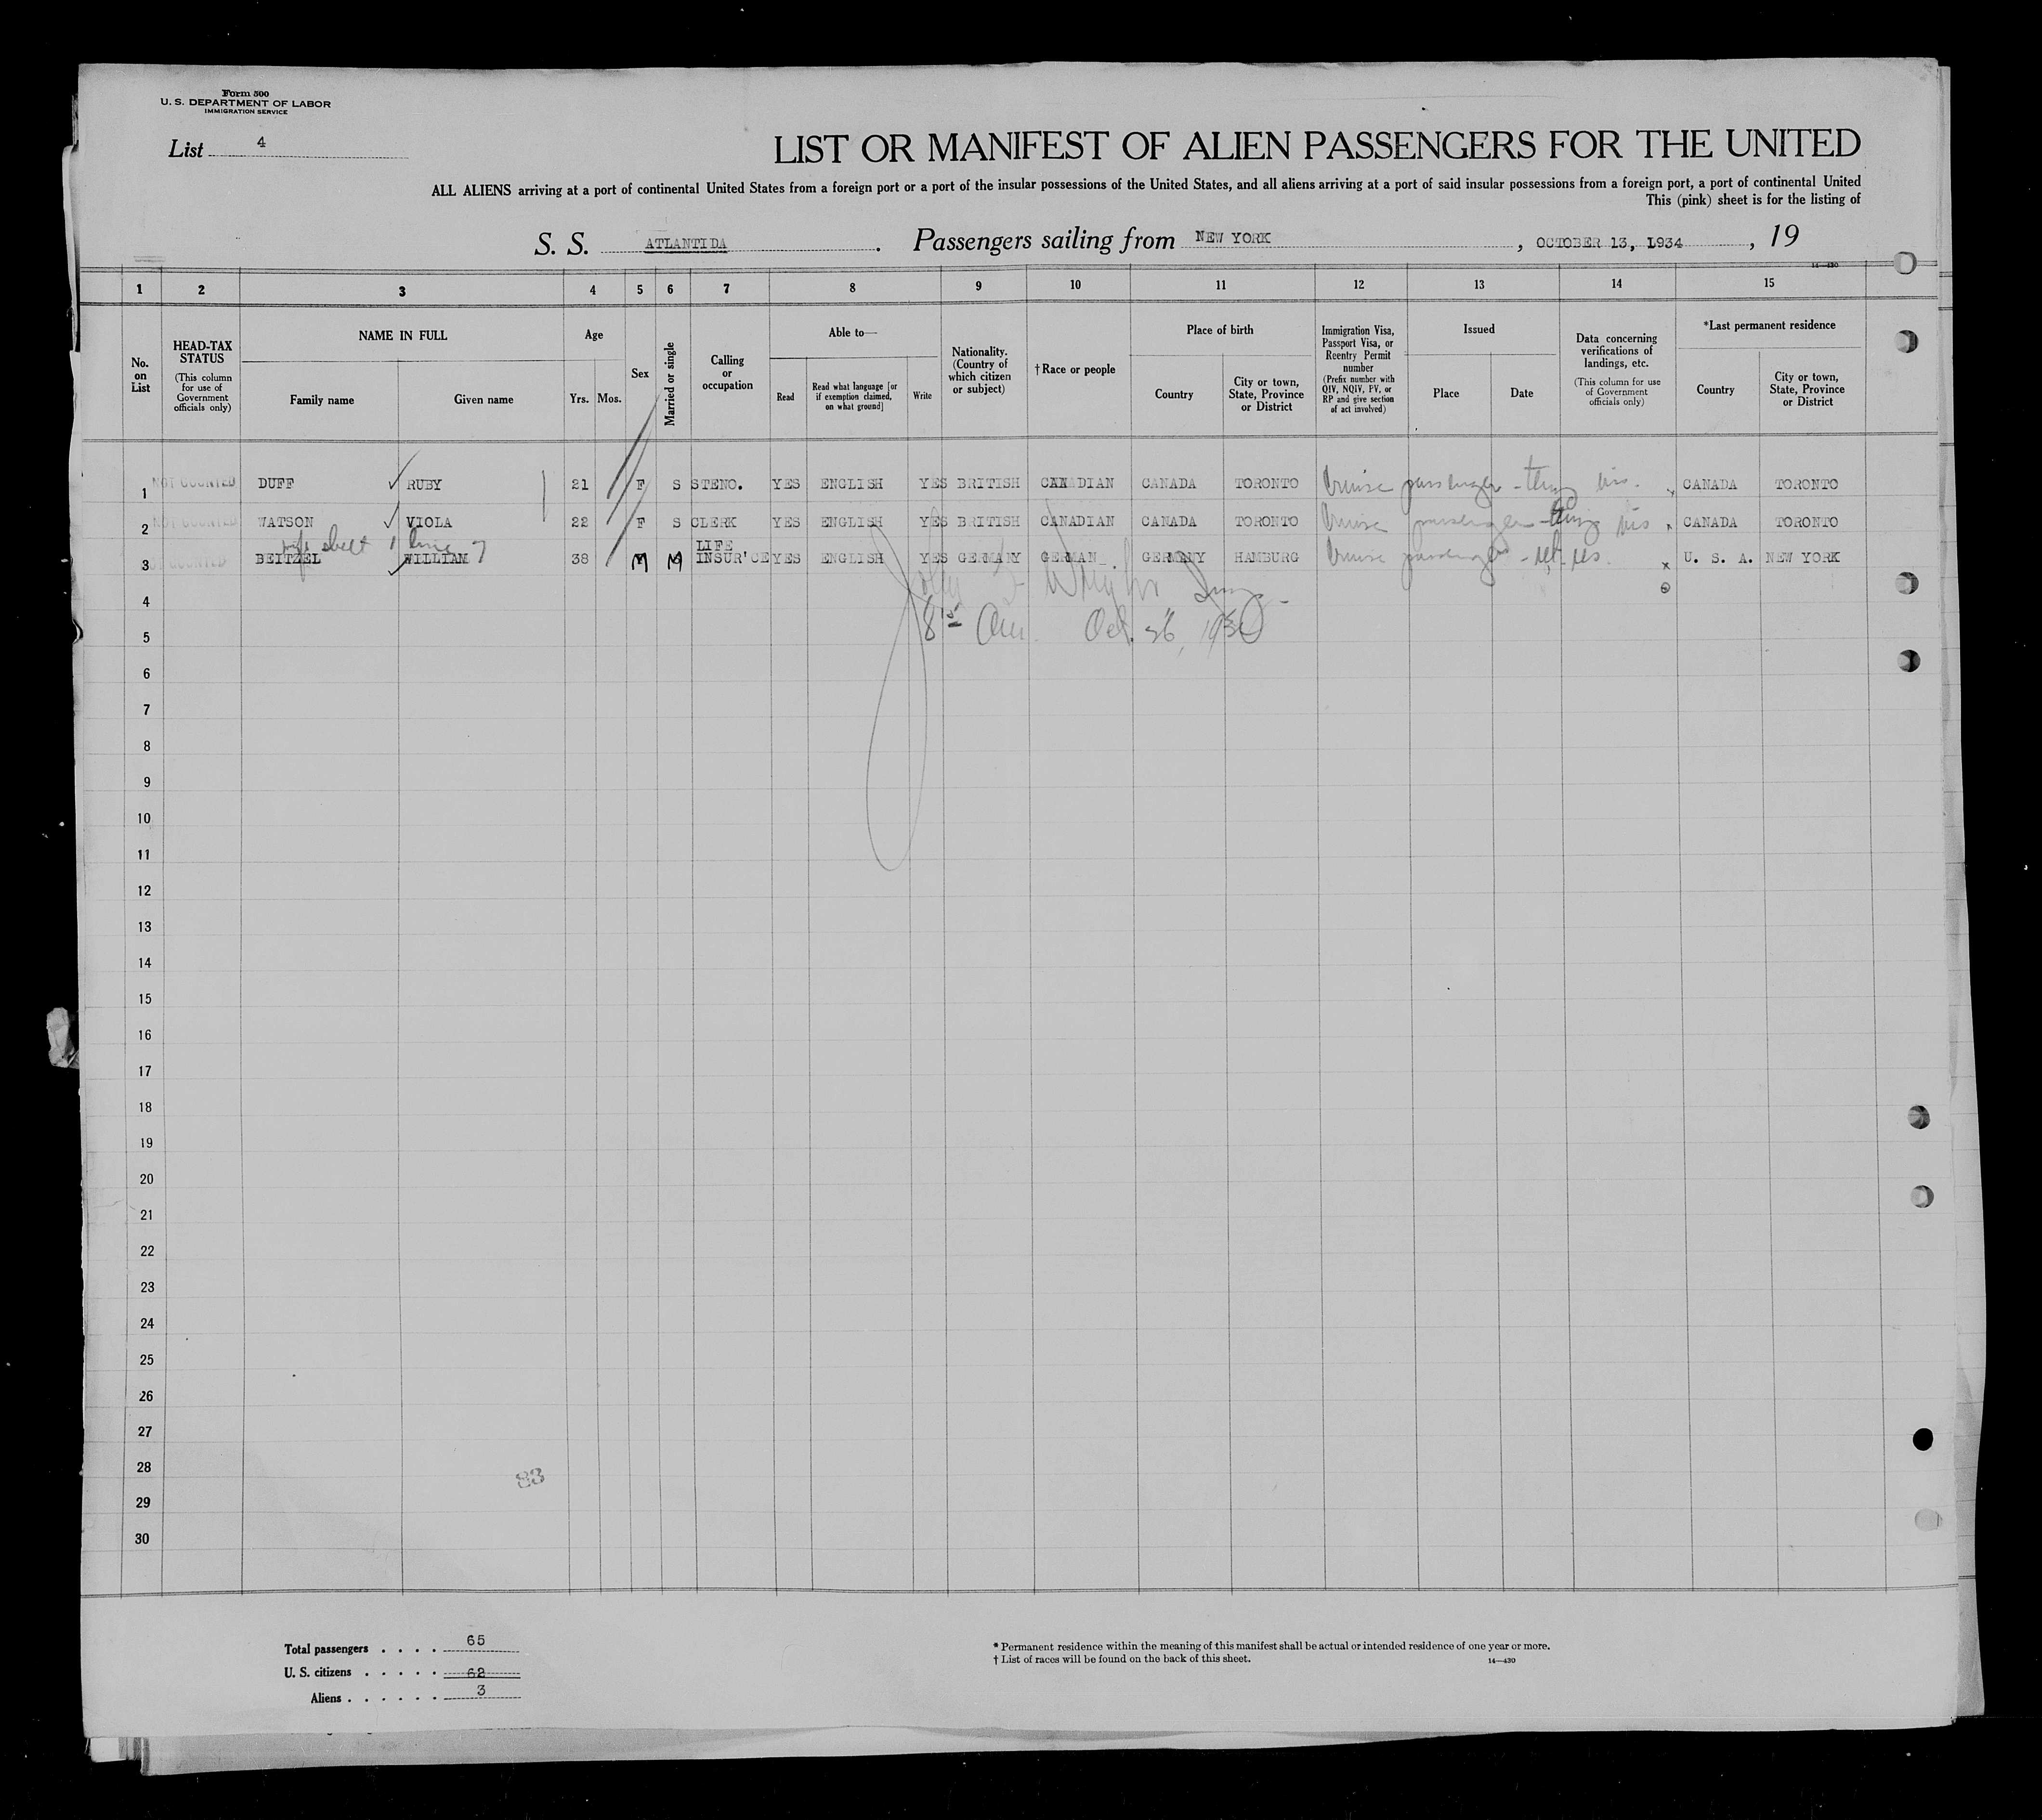 Form 500
U. S. DEPARTMENT OF LABOR
IMMIGRATION SERVICE
List 4
LIST OR MANIFEST OF ALIEN PASSENGERS FOR THE UNITED
ALL ALIENS arriving at a port of continental United States from a foreign port or a port of the insular possessions of the United States, and all aliens arriving at a port of said insular possessions from a foreign port, a port of continental United
This (pink) sheet is for the listing of
S. S. ATLANTIDA . Passengers sailing from NEW YORK , OCTOBER 13, 1934 , 19
14—430
1 2 3 4 5 6 7 8 9 10 11 12 13 14 15
No. on List
HEAD-TAX STATUS (This column for use of Government officials only)
NAME IN FULL
Family name Given name
Age
Yrs. Mos.
Sex
Married or single
Calling or occupation
Able to—
Read
Read what language [or if exemption claimed, on what ground]
Write
Nationality. (Country of which citizen or subject)
†Race or people
Place of birth
Country
City or town, State, Province or District
Immigration Visa, Passport Visa, or Reentry Permit number (Prefix number with QIV, NQIV, PV, or RP and give section of act involved)
Issued
Place Date
Data concerning verifications of landings, etc. (This column for use of Government officials only)
*Last permanent residence
Country
City or town, State, Province or District
1 NOT COUNTED DUFF RUBY 21 F S STENO. YES ENGLISH YES BRITISH CANADIAN CANADA TORONTO Cruise passenger CANADA TORONTO
2 NOT COUNTED WATSON VIOLA 22 F S CLERK YES ENGLISH YES BRITISH CANADIAN CANADA TORONTO Cruise passenger CANADA TORONTO
wife sheet 1 line 7
3 NOT COUNTED BEITZEL WILLIAM 38 M M LIFE INSUR'CE YES ENGLISH YES GERMANY GERMAN GERMANY HAMBURG Cruise passenger - ret. res. U. S. A. NEW YORK
4
Oct. 26, 1934
5
6
7
8
9
10
11
12
13
14
15
16
17
18
19
20
21
22
23
24
25
26
27
28
83
29
30
Total passengers . . . . 65
U. S. citizens . . . . . 62
Aliens . . . . . . 3
* Permanent residence within the meaning of this manifest shall be actual or intended residence of one year or more.
† List of races will be found on the back of this sheet.
14—430